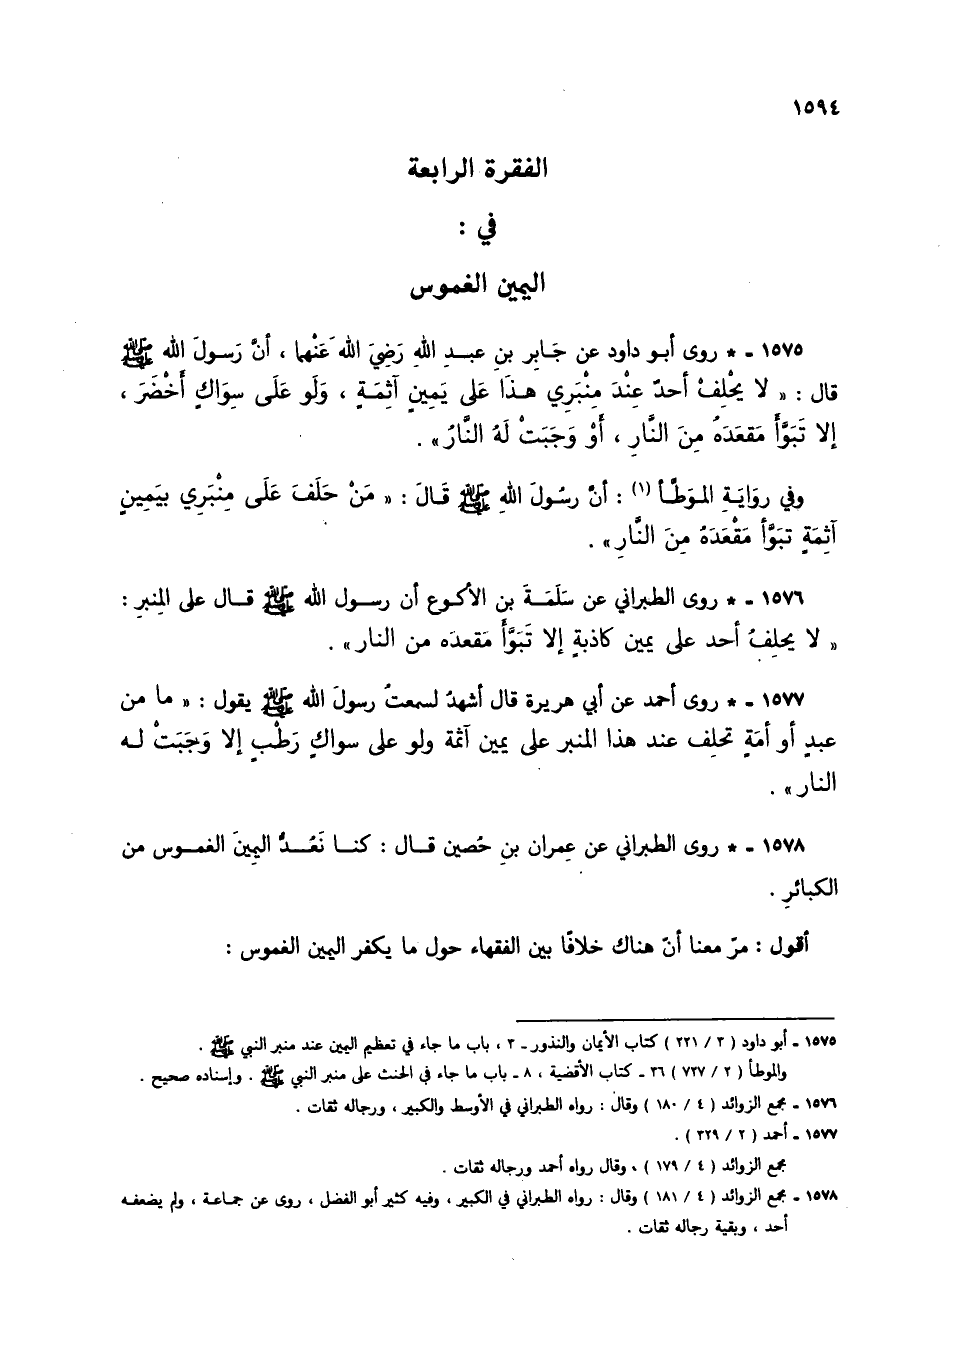 ١٥٩٤
الفقرة الرابعة
في :
اليمين الغموس
١٥٧٥ - * روى أبو داود عن جَابِرِ بنِ عبدِ اللهِ رَضِيَ اللهُ عَنْهما ، أنَّ رَسولَ الله ﷺ
قال : « لا يَحْلِفْ أحدٌ عِنْدَ مِنْبَرِي هذَا عَلى يَمِينٍ آثِمَةٍ ، وَلَو عَلَى سِوَاكٍ أَخْضَرَ ،
إلا تَبَوَّأَ مَقعَدَهُ مِنَ النَّارِ ، أَوْ وَجَبَتْ لَهُ النَّارُ» .
وفي روَايَةِ الموَطَّأ (١) : أنَّ رسُولَ اللهِ ﷺ قَالَ : « مَنْ حَلَفَ عَلَى مِنْبَرِي بيَمِينٍ
آثِمَةٍ تبَوَّأ مَقْعَدَهُ مِنَ النَّارِ» .
١٥٧٦ - * روى الطبراني عن سَلَمَةَ بن الأكوع أن رسول الله ﷺ قال على المِنبرِ :
« لا يحلِفُ أحد على يمين كاذبةٍ إلا تَبَوَّأَ مَقعدَه من النار» .
١٥٧٧ - * روى أحمد عن أبي هريرة قال أشهدُ لسمعتُ رسولَ الله ﷺ يقول : « ما من
عبدٍ أو أمَةٍ تحلِف عند هذا المنبر على يمين آثمة ولو على سواكٍ رَطْبٍ إلا وَجَبَتْ له
النار» .
١٥٧٨ - * روى الطبراني عن عِمران بنِ حُصين قال : كنا نَعُدُّ اليمِينَ الغموس من
الكبائرِ .
أقول : مرّ معنا أنّ هناك خلافًا بين الفقهاء حول ما يكفر اليمين الغموس :
١٥٧٥ - أبو داود ( ٣ / ٢٢١ ) كتاب الأيمان والنذور - ٣ ، باب ما جاء في تعظيم اليمين عند منبر النبي ﷺ .
والموطأ ( ٢ / ٧٢٧ ) ٣٦ - كتاب الأقضية ، ٨ - باب ما جاء في الحنث على منبر النبي ﷺ . وإسناده صحيح .
١٥٧٦ - مجمع الزوائد ( ٤ / ١٨٠ ) وقال : رواه الطبراني في الأوسط والكبير ، ورجاله ثقات .
١٥٧٧ - أحمد ( ٢ / ٣٢٩ ) .
مجمع الزوائد ( ٤ / ١٧٩ ) ، وقال رواه أحمد ورجاله ثقات .
١٥٧٨ - مجمع الزوائد ( ٤ / ١٨١ ) وقال : رواه الطبراني في الكبير ، وفيه كثير أبو الفضل ، روى عن جماعة ، ولم يضعفه
أحد ، وبقية رجاله ثقات .